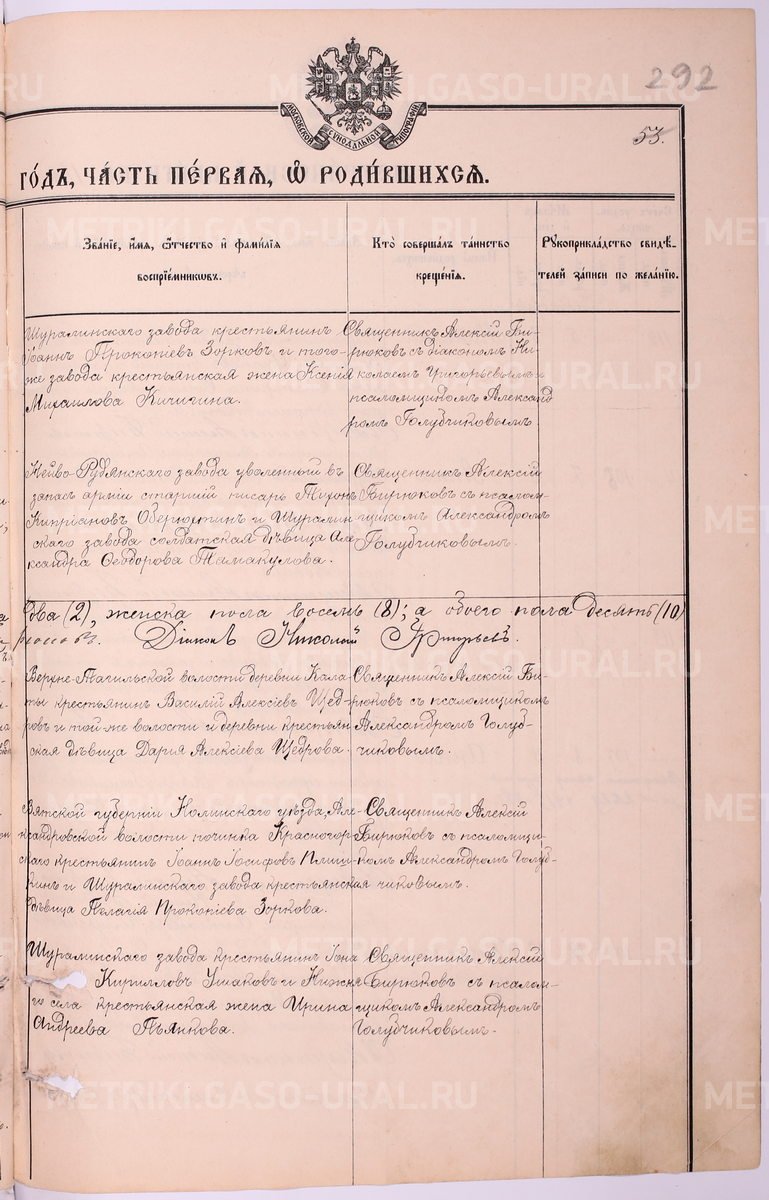 292
МОСКОВСКОЙ СѴНОДАЛЬНОЙ ТИПОГРАФІИ
53.
ГО́ДЪ, ЧА́СТЬ ПЕ́РВАЯ, Ѽ РОДИ́ВШИХСѦ.
Зва́ніе, и́мя, ѻ҆́тчество и҆ фами́лія
воспріе́мниковъ.
Кто̀ соверша́лъ та́инство
креще́нія.
Рꙋкоприкла́дство свидѣ́-
телей за́писи по жела́нію.
Шуралинскаго завода крестьянинъ
Іоаннъ Прокопіевъ Зорковъ и того-
же завода крестьянская жена Ксенія
Михаилова Кичигина.
Священникъ Алексій Би-
рюковъ съ діакономъ Ни-
колаемъ Григорьевымъ и
псаломщикомъ Александ
ромъ Голубчиковымъ.
Нейво-Рудянскаго завода уволенный въ
запасъ арміи старшій писарь Тихонъ
Кипріановъ Оберюхтинъ и Шуралин-
скаго завода солдатская дѣвица Але
ксандра Ѳеодорова Тамакулова.
Священникъ Алексій
Бирюковъ съ псалом-
щикомъ Александромъ
Голубчиковымъ.
два (2), женска пола восемь (8); а обоего пола десять (10)
Діаконъ Николай Григорьевъ.
Верхне-Тагильской волости деревни Кала
ты крестьянинъ Василій Алексіевъ Щед-
ровъ и той-же волости и деревни крестьян
ская дѣвица Дарія Алексіева Щедрова.
Священникъ Алексій Би-
рюковъ съ псаломщикомъ
Александромъ Голуб-
чиковымъ.
Вятской губерніи Нолинскаго уѣзда, Але-
ксандровской волости починка Красногор
скаго крестьянинъ Іоаннъ Іосифовъ
и Шуралинскаго завода крестьянская
дѣвица Пелагія Прокопіева Зоркова.
Священникъ Алексій
Бирюковъ съ псаломщи-
комъ Александромъ Голуб-
чиковымъ.
Шуралинскаго завода крестьянинъ Іона
Кирилловъ Ушаковъ и Нижне
го села крестьянская жена Ирина
Андреева Пьянкова.
Священникъ Алексій
Бирюковъ съ псалом-
щикомъ Александромъ
Голубчиковымъ.
METRIKI.GASO-URAL.RU